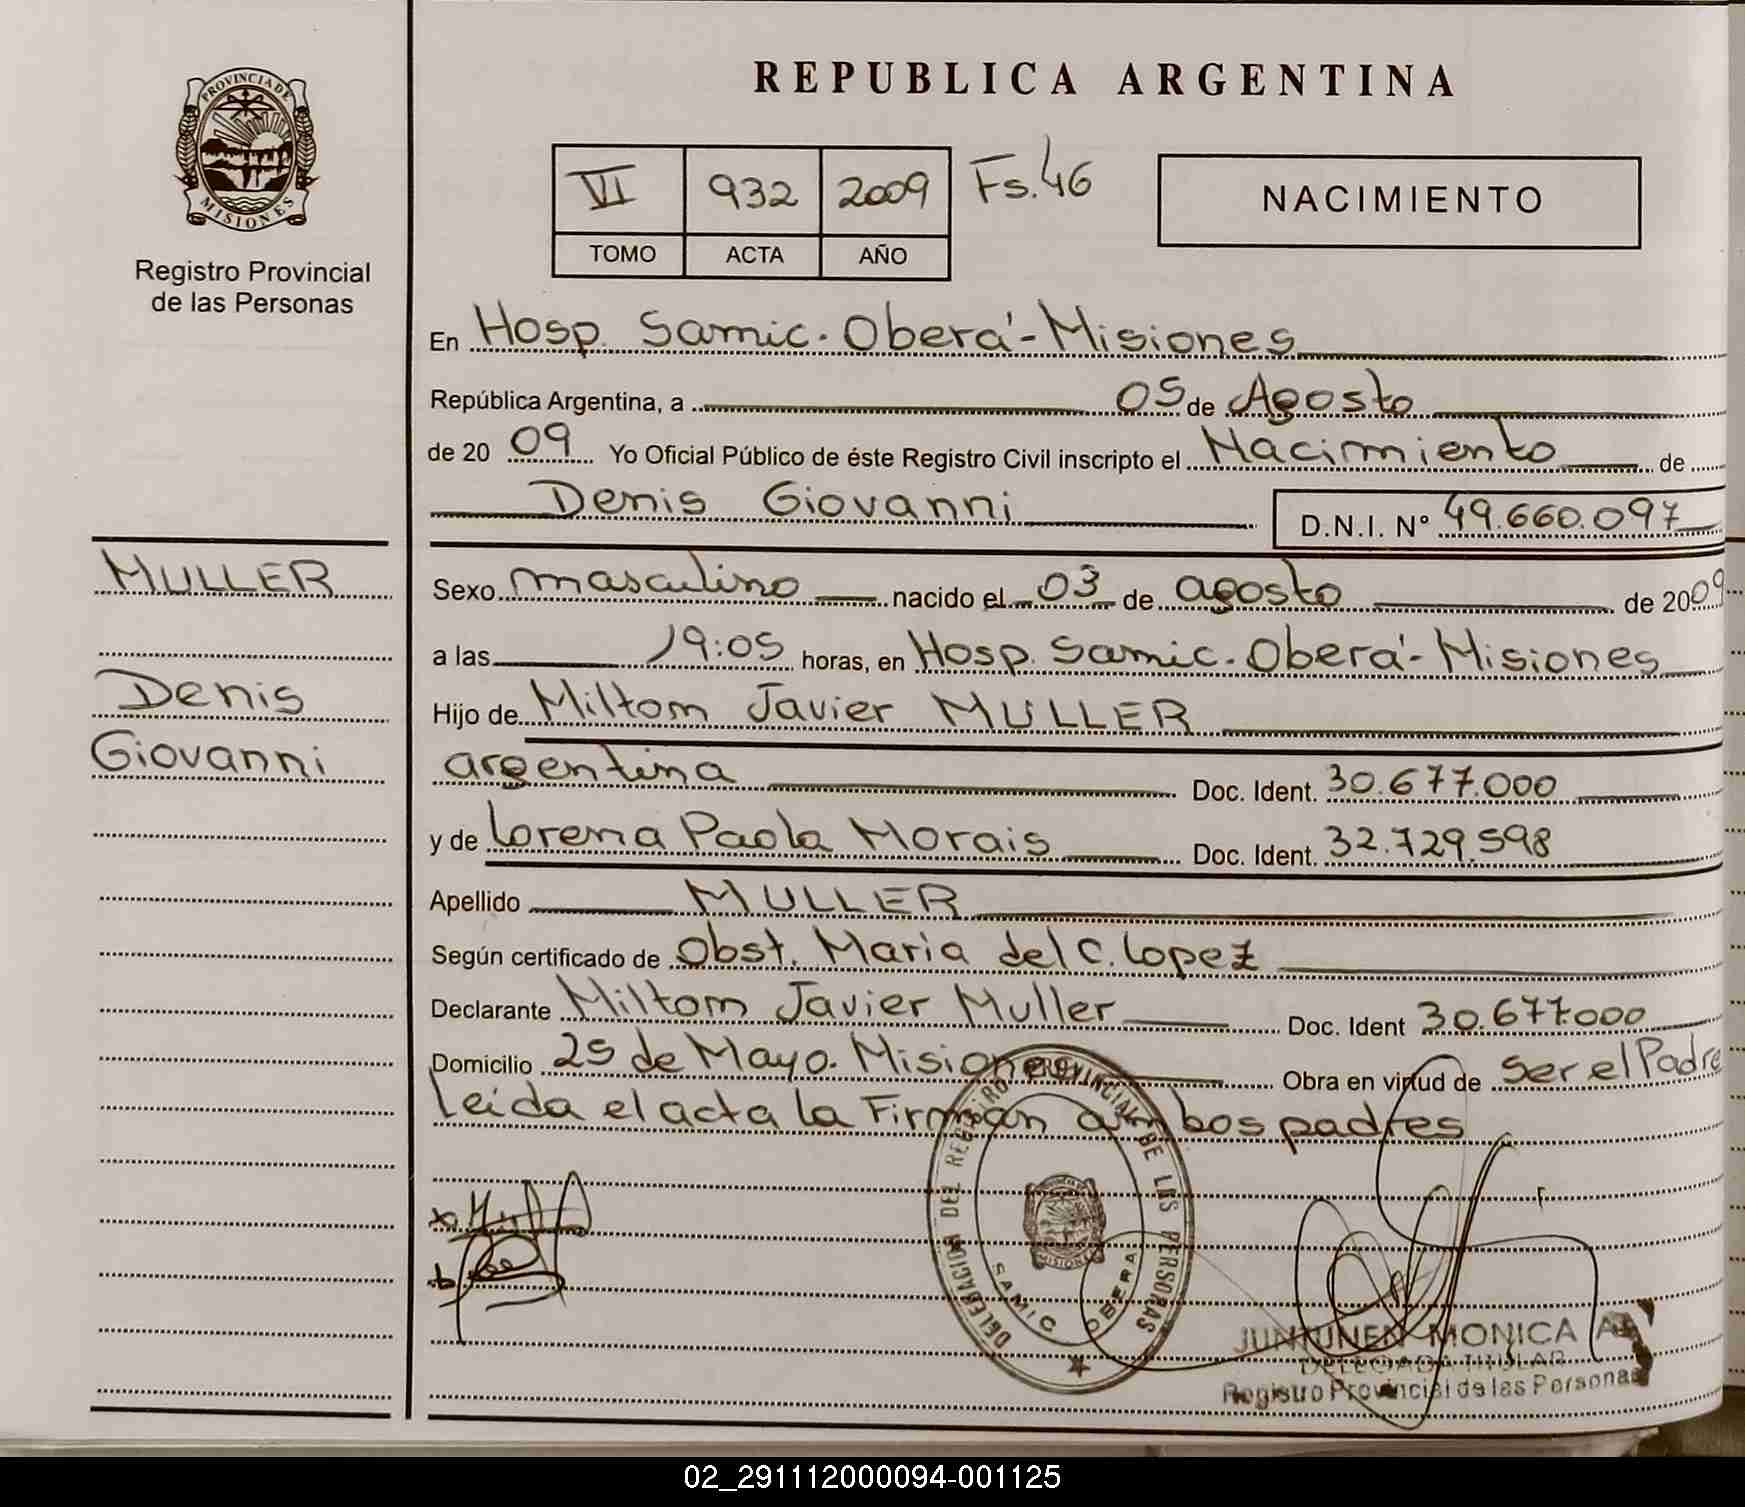 REPUBLICA ARGENTINA
PROVINCIA DE MISIONES
Registro Provincial
de las Personas
VI 932 2009 Fs. 46
TOMO ACTA AÑO
NACIMIENTO
En Hosp. Samic. Oberá - Misiones
República Argentina, a 05 de Agosto
de 20 09 Yo Oficial Público de éste Registro Civil inscripto el Nacimiento de
Denis Giovanni D.N.I. N° 49.660.097
MULLER
Denis
Giovanni
Sexo masculino nacido el 03 de agosto de 2009
a las 19:05 horas, en Hosp. Samic. Oberá - Misiones
Hijo de Miltom Javier MULLER
argentina Doc. Ident. 30.677.000
y de Lorena Paola Morais Doc. Ident. 32.729.598
Apellido MULLER
Según certificado de Obst. Maria del C. Lopez
Declarante Miltom Javier Muller Doc. Ident 30.677.000
Domicilio 25 de Mayo. Misiones Obra en virtud de ser el Padre
Leída el acta la Firman ambos padres
DELEGACION DEL REGISTRO PROVINCIAL DE LAS PERSONAS
SAMIC OBERA
MISIONES
JUNTUNEN MONICA
DELEGADA TITULAR
Registro Provincial de las Personas
02_291112000094-001125